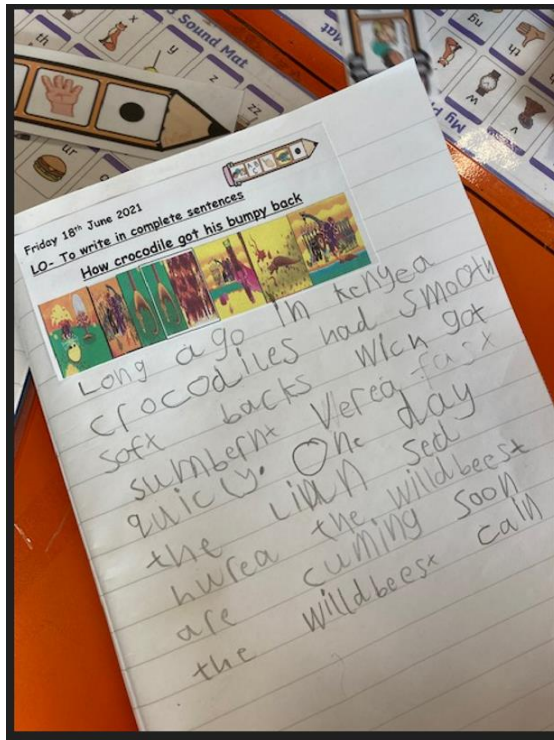 Sound Mat
th
x
y
z
zz
ur
ng
th
w
v
My Ph
Mat
Friday 18th June 2021
LO- To write in complete sentences
How crocodile got his bumpy back
Long a go in kenyea
crocodiles had smooth
soft backs wich got
sumbernt verea fast
quicly. One day
the lian sed
hurea the wildbeest
are cuming soon
the willdbeest cam